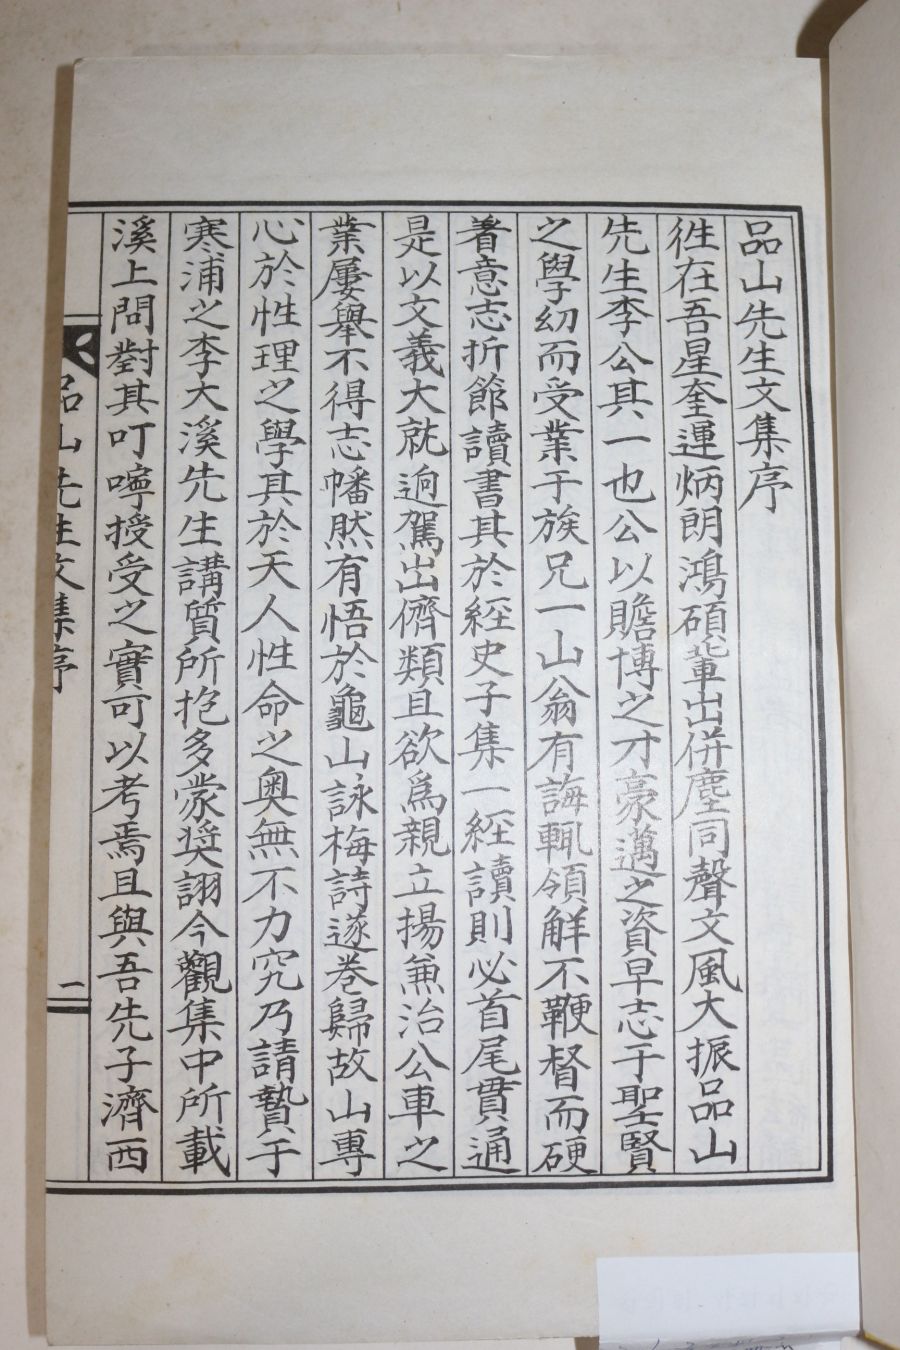 品山先生文集序
徃在吾星奎運炳朗鴻碩輩出併塵同聲文風大振品山
先生李公其一也公以贍博之才豪邁之資早志于聖賢
之學幼而受業于族兄一山翁有誨輒領解不鞭督而硬
着意志折節讀書其於経史子集一経讀則必首尾貫通
是以文義大就逈駕出儕類且欲爲親立揚兼治公車之
業屢擧不得志幡然有悟於龜山詠梅詩遂巻歸故山專
心於性理之學其於天人性命之奥無不力究乃請贄于
寒浦之李大溪先生講質所抱多蒙奬詡今觀集中所載
溪上問對其叮嚀授受之實可以考焉且與吾先子濟西
品山先生文集序
一